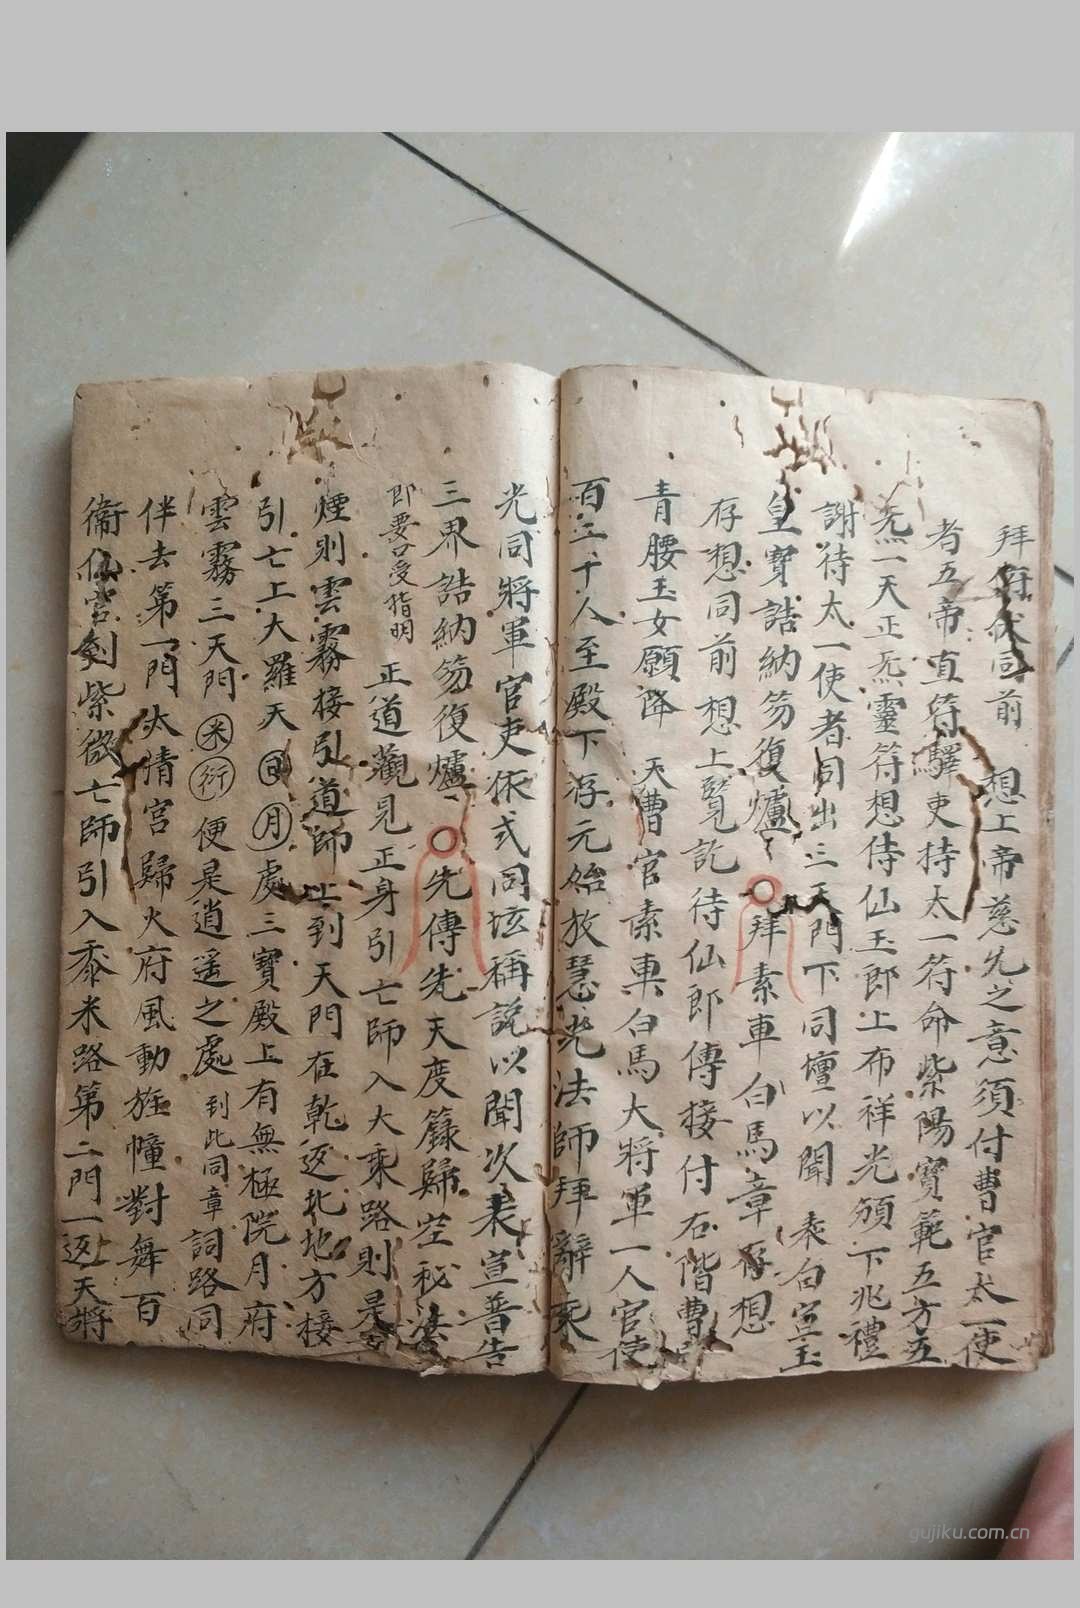 拜 伏同前 想上帝慈允之意須付曹官太一使
者五帝直符驛吏持太一符命紫陽寶範五方五
炁一天正炁靈符想侍仙玉郎上布祥光頒下兆禮
謝待太一使者同出三天門下同壇以聞 表白宣玉
皇寶誥納笏復爐 拜素車白馬章 存想
存想同前想上覽訖待仙郎傳接付右階曹
青腰玉女願降 天曹官素車白馬大將軍一人官使
百二十人至殿下存元始放慧光法師拜辭乘
光同將軍官吏依式同 稱說以聞次表宣普告
三界誥納笏復爐 先傳先天度籙歸空秘法
即要口受指明 正道觀見正身引亡師入大乘路則是
煙則雲霧接引道師上到天門在乾返北地方接
引亡上大羅天 月處三寶殿上有無極院月府
雲霧三天門米衍便是逍遥之處到此同章詞路同
伴去第一門太清宮歸火府風動旌幢對舞百
衛仙官 紫微亡師引入黍米路第二門一返天將
gujiku.com.cn